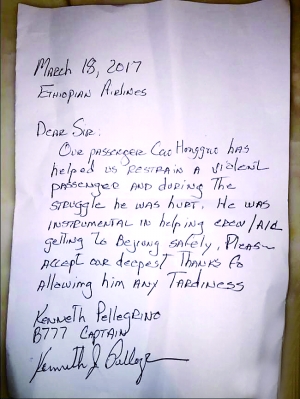 March 18, 2017
Ethiopian Airlines
Dear Sir:
Our passenger Cao Hongguo has
helped us restrain a violent
passenger and during the
struggle he was hurt. He was
instrumental in helping crew/Aid
getting to Beijing safely, Please
accept our deepest thanks fo
allowing him any tardiness
Kenneth Pellegrino
B777 Captain
Kenneth J Pellegr